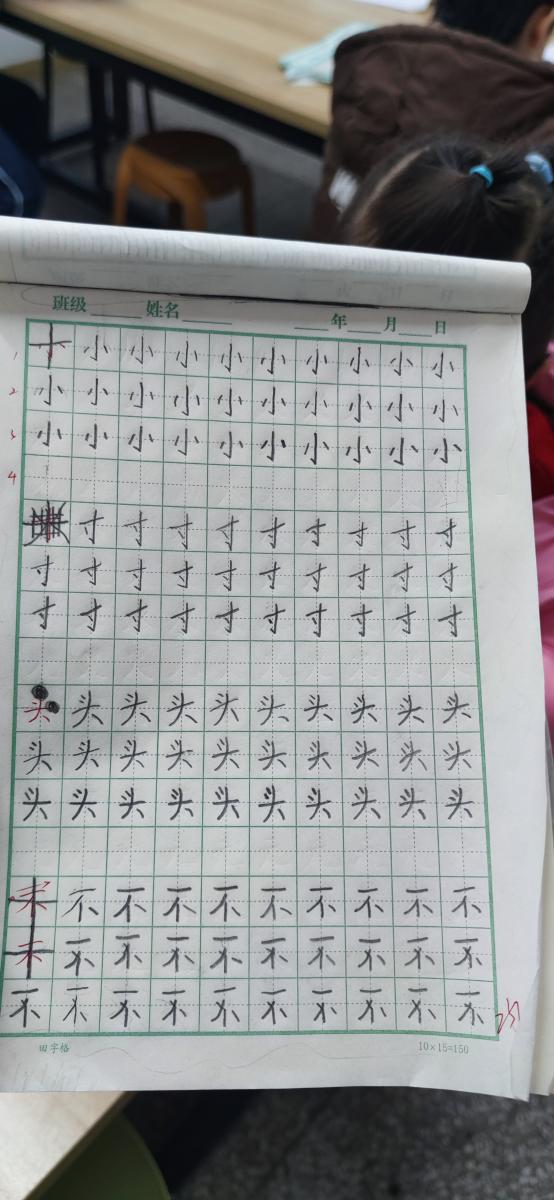 班级 姓名 年 月 日
1 小 小 小 小 小 小 小 小 小
2 小 小 小 小 小 小 小 小 小 小
3 小 小 小 小 小 小 小 小 小 小
4
寸 寸 寸 寸 寸 寸 寸 寸 寸
寸 寸 寸 寸 寸 寸 寸 寸 寸 寸
寸 寸 寸 寸 寸 寸 寸 寸 寸 寸
头 头 头 头 头 头 头 头 头 头
头 头 头 头 头 头 头 头 头 头
头 头 头 头 头 头 头 头 头 头
不 不 不 不 不 不 不 不 不
不 不 不 不 不 不 不 不 不
不 不 不 不 不 不 不 不 不 不
田字格 10×15=150